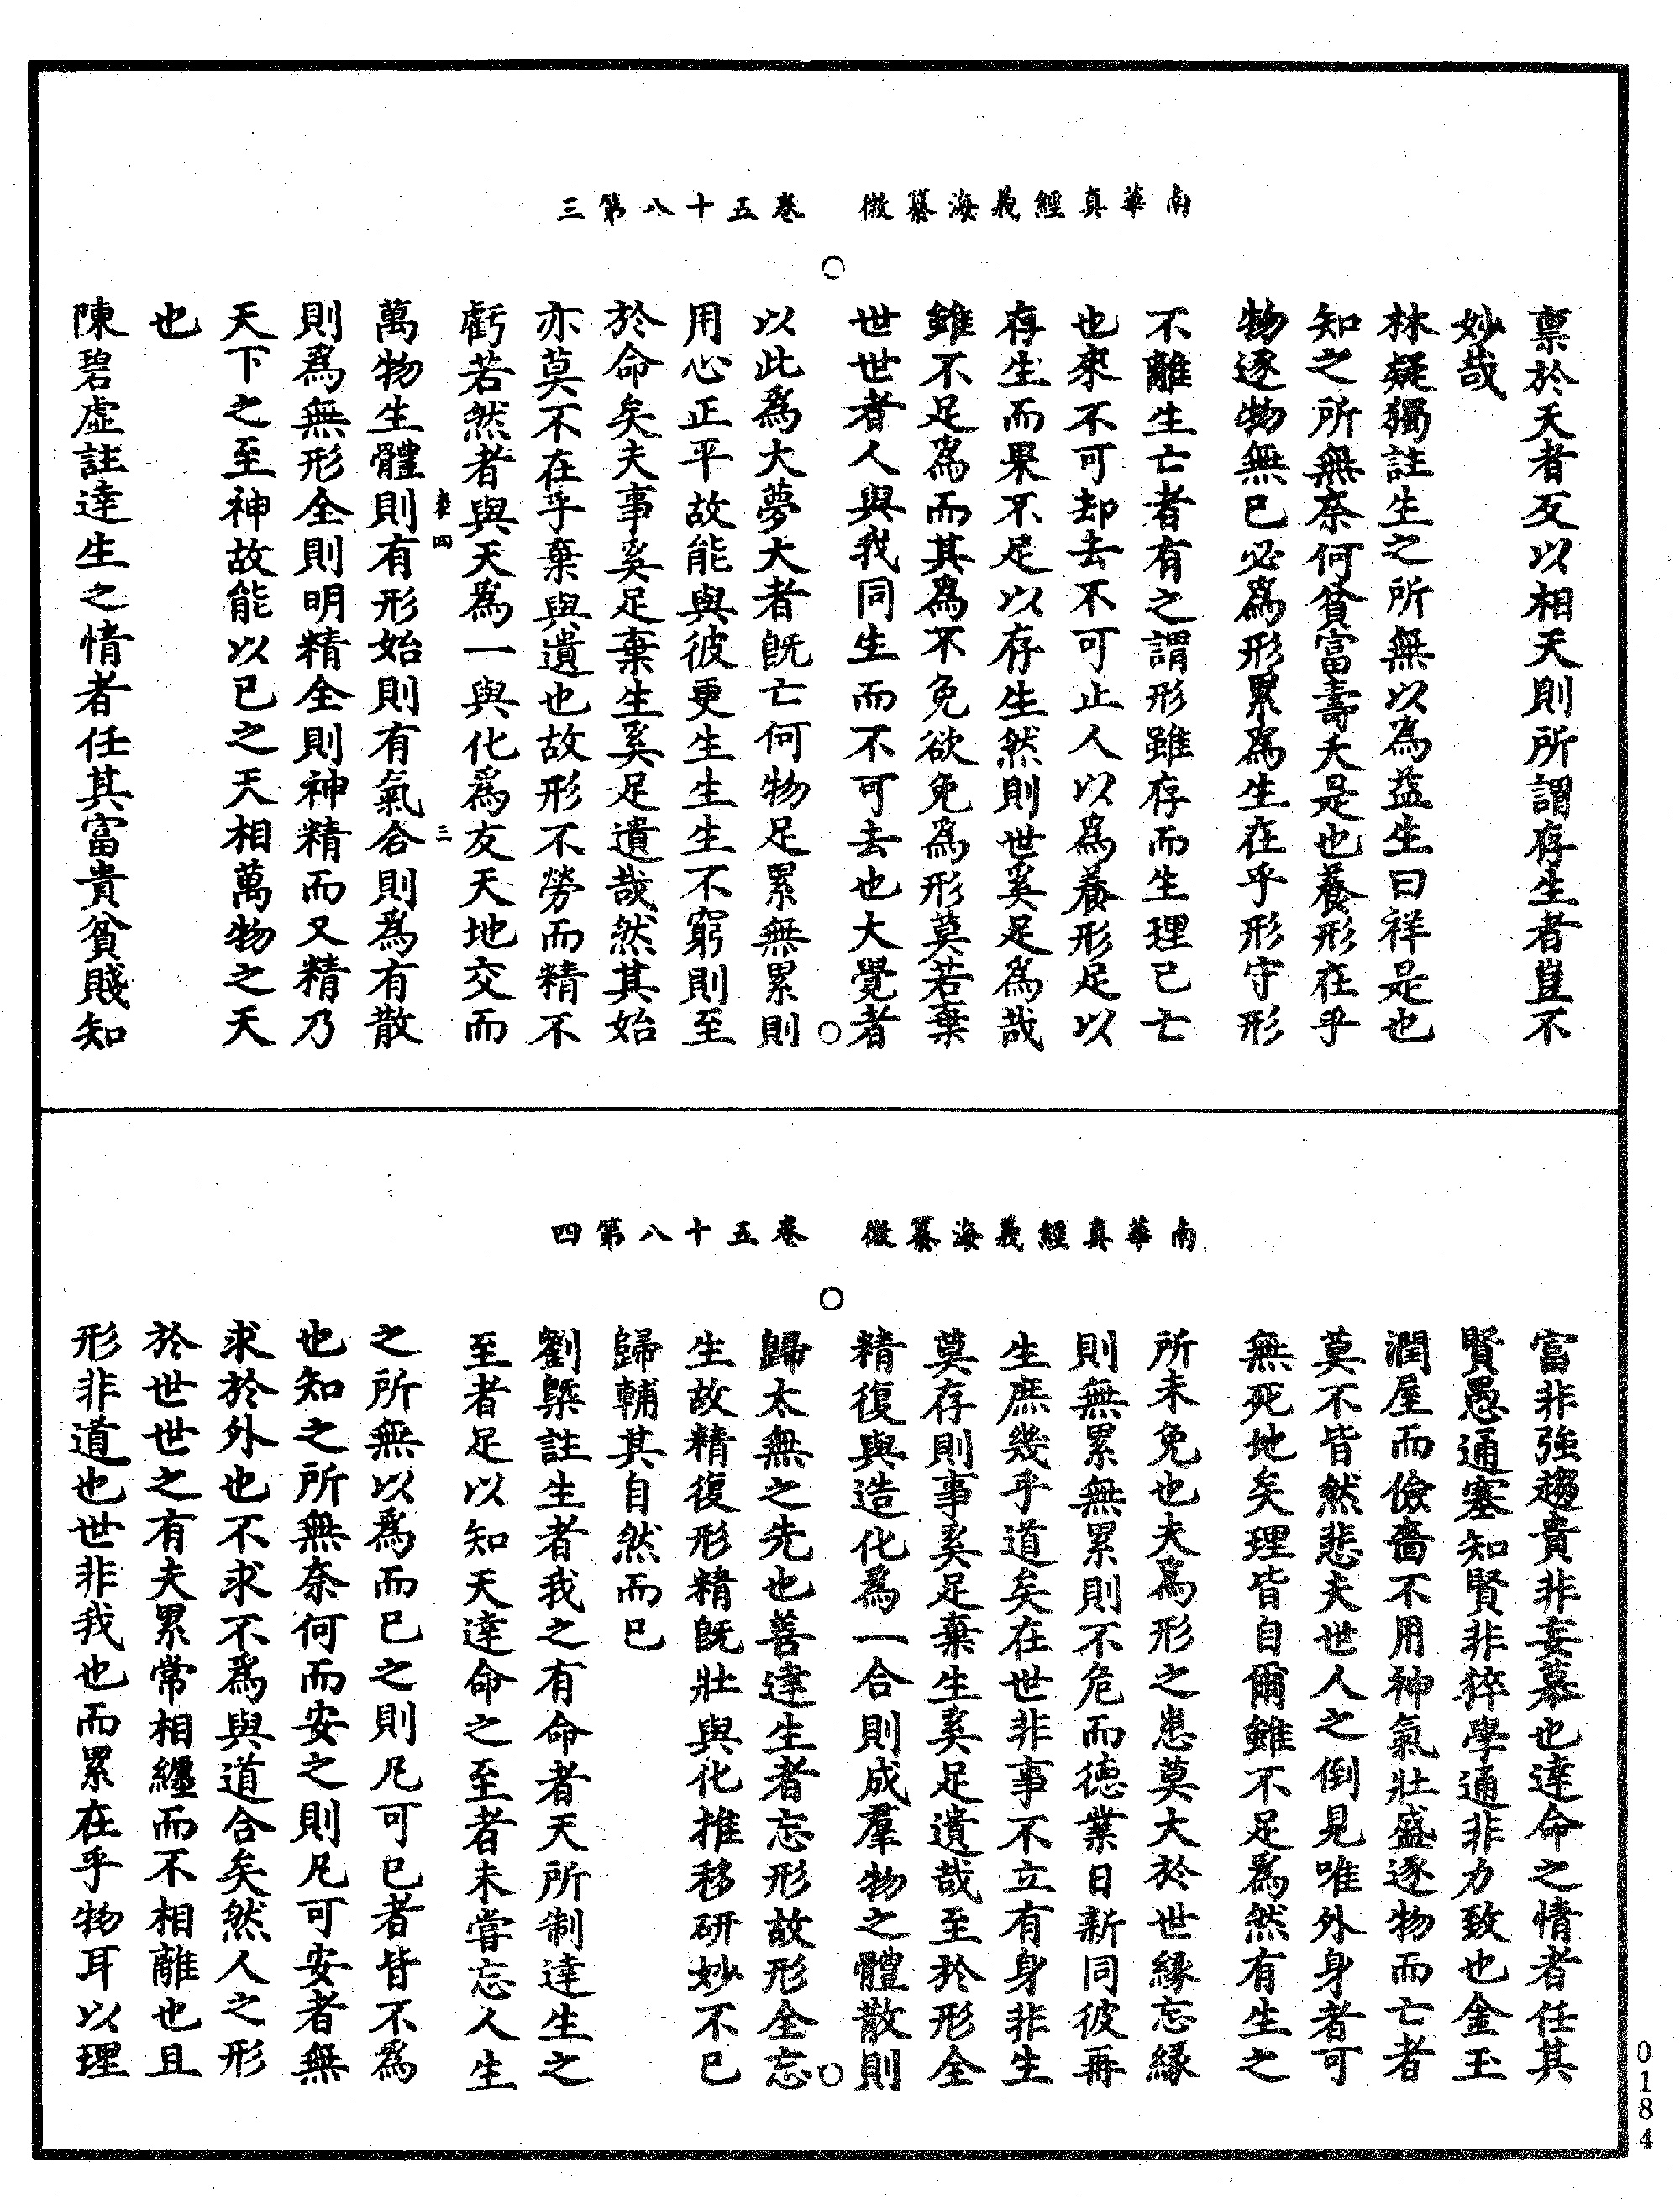 南華真經義海纂微　卷五十八第三
稟於天者反以相天則所謂存生者豈不
妙哉
林疑獨註生之所無以為益生曰祥是也
知之所無奈何貧富壽夭是也養形在乎
物逐物無已必為形累為生在乎形守形
不離生亡者有之謂形雖存而生理已亡
也來不可却去不可止人以為養形足以
存生而果不足以存生然則世奚足為哉
雖不足為而其為不免欲免為形莫若棄
世世者人與我同生而不可去也大覺者
以此為大夢大者既亡何物足累無累則
用心正平故能與彼更生生生不窮則至
於命矣夫事奚足棄生奚足遺哉然其始
亦莫不在乎棄與遺也故形不勞而精不
虧若然者與天為一與化為友天地交而
萬物生體則有形始則有氣合則為有散
則為無形全則明精全則神精而又精乃
天下之至神故能以已之天相萬物之天
也
陳碧虛註達生之情者任其富貴貧賤知
南華真經義海纂微　卷五十八第四
富非強趨貴非妄慕也達命之情者任其
賢愚通塞知賢非猝學通非力致也金玉
潤屋而儉嗇不用神氣壯盛逐物而亡者
莫不皆然悲夫世人之倒見唯外身者可
無死地矣理皆自爾雖不足為然有生之
所未免也夫為形之患莫大於世緣忘緣
則無累無累則不危而德業日新同彼再
生庶幾乎道矣在世非事不立有身非生
莫存則事奚足棄生奚足遺哉至於形全
精復與造化為一合則成羣物之體散則
歸太無之先也善達生者忘形故形全忘
生故精復形精既壯與化推移研妙不已
歸輔其自然而已
劉槩註生者我之有命者天所制達生之
至者足以知天達命之至者未嘗忘人生
之所無以為而已之則凡可已者皆不為
也知之所無奈何而安之則凡可安者無
求於外也不求不為與道合矣然人之形
於世世之有夫累常相纏而不相離也且
形非道也世非我也而累在乎物耳以理
0184